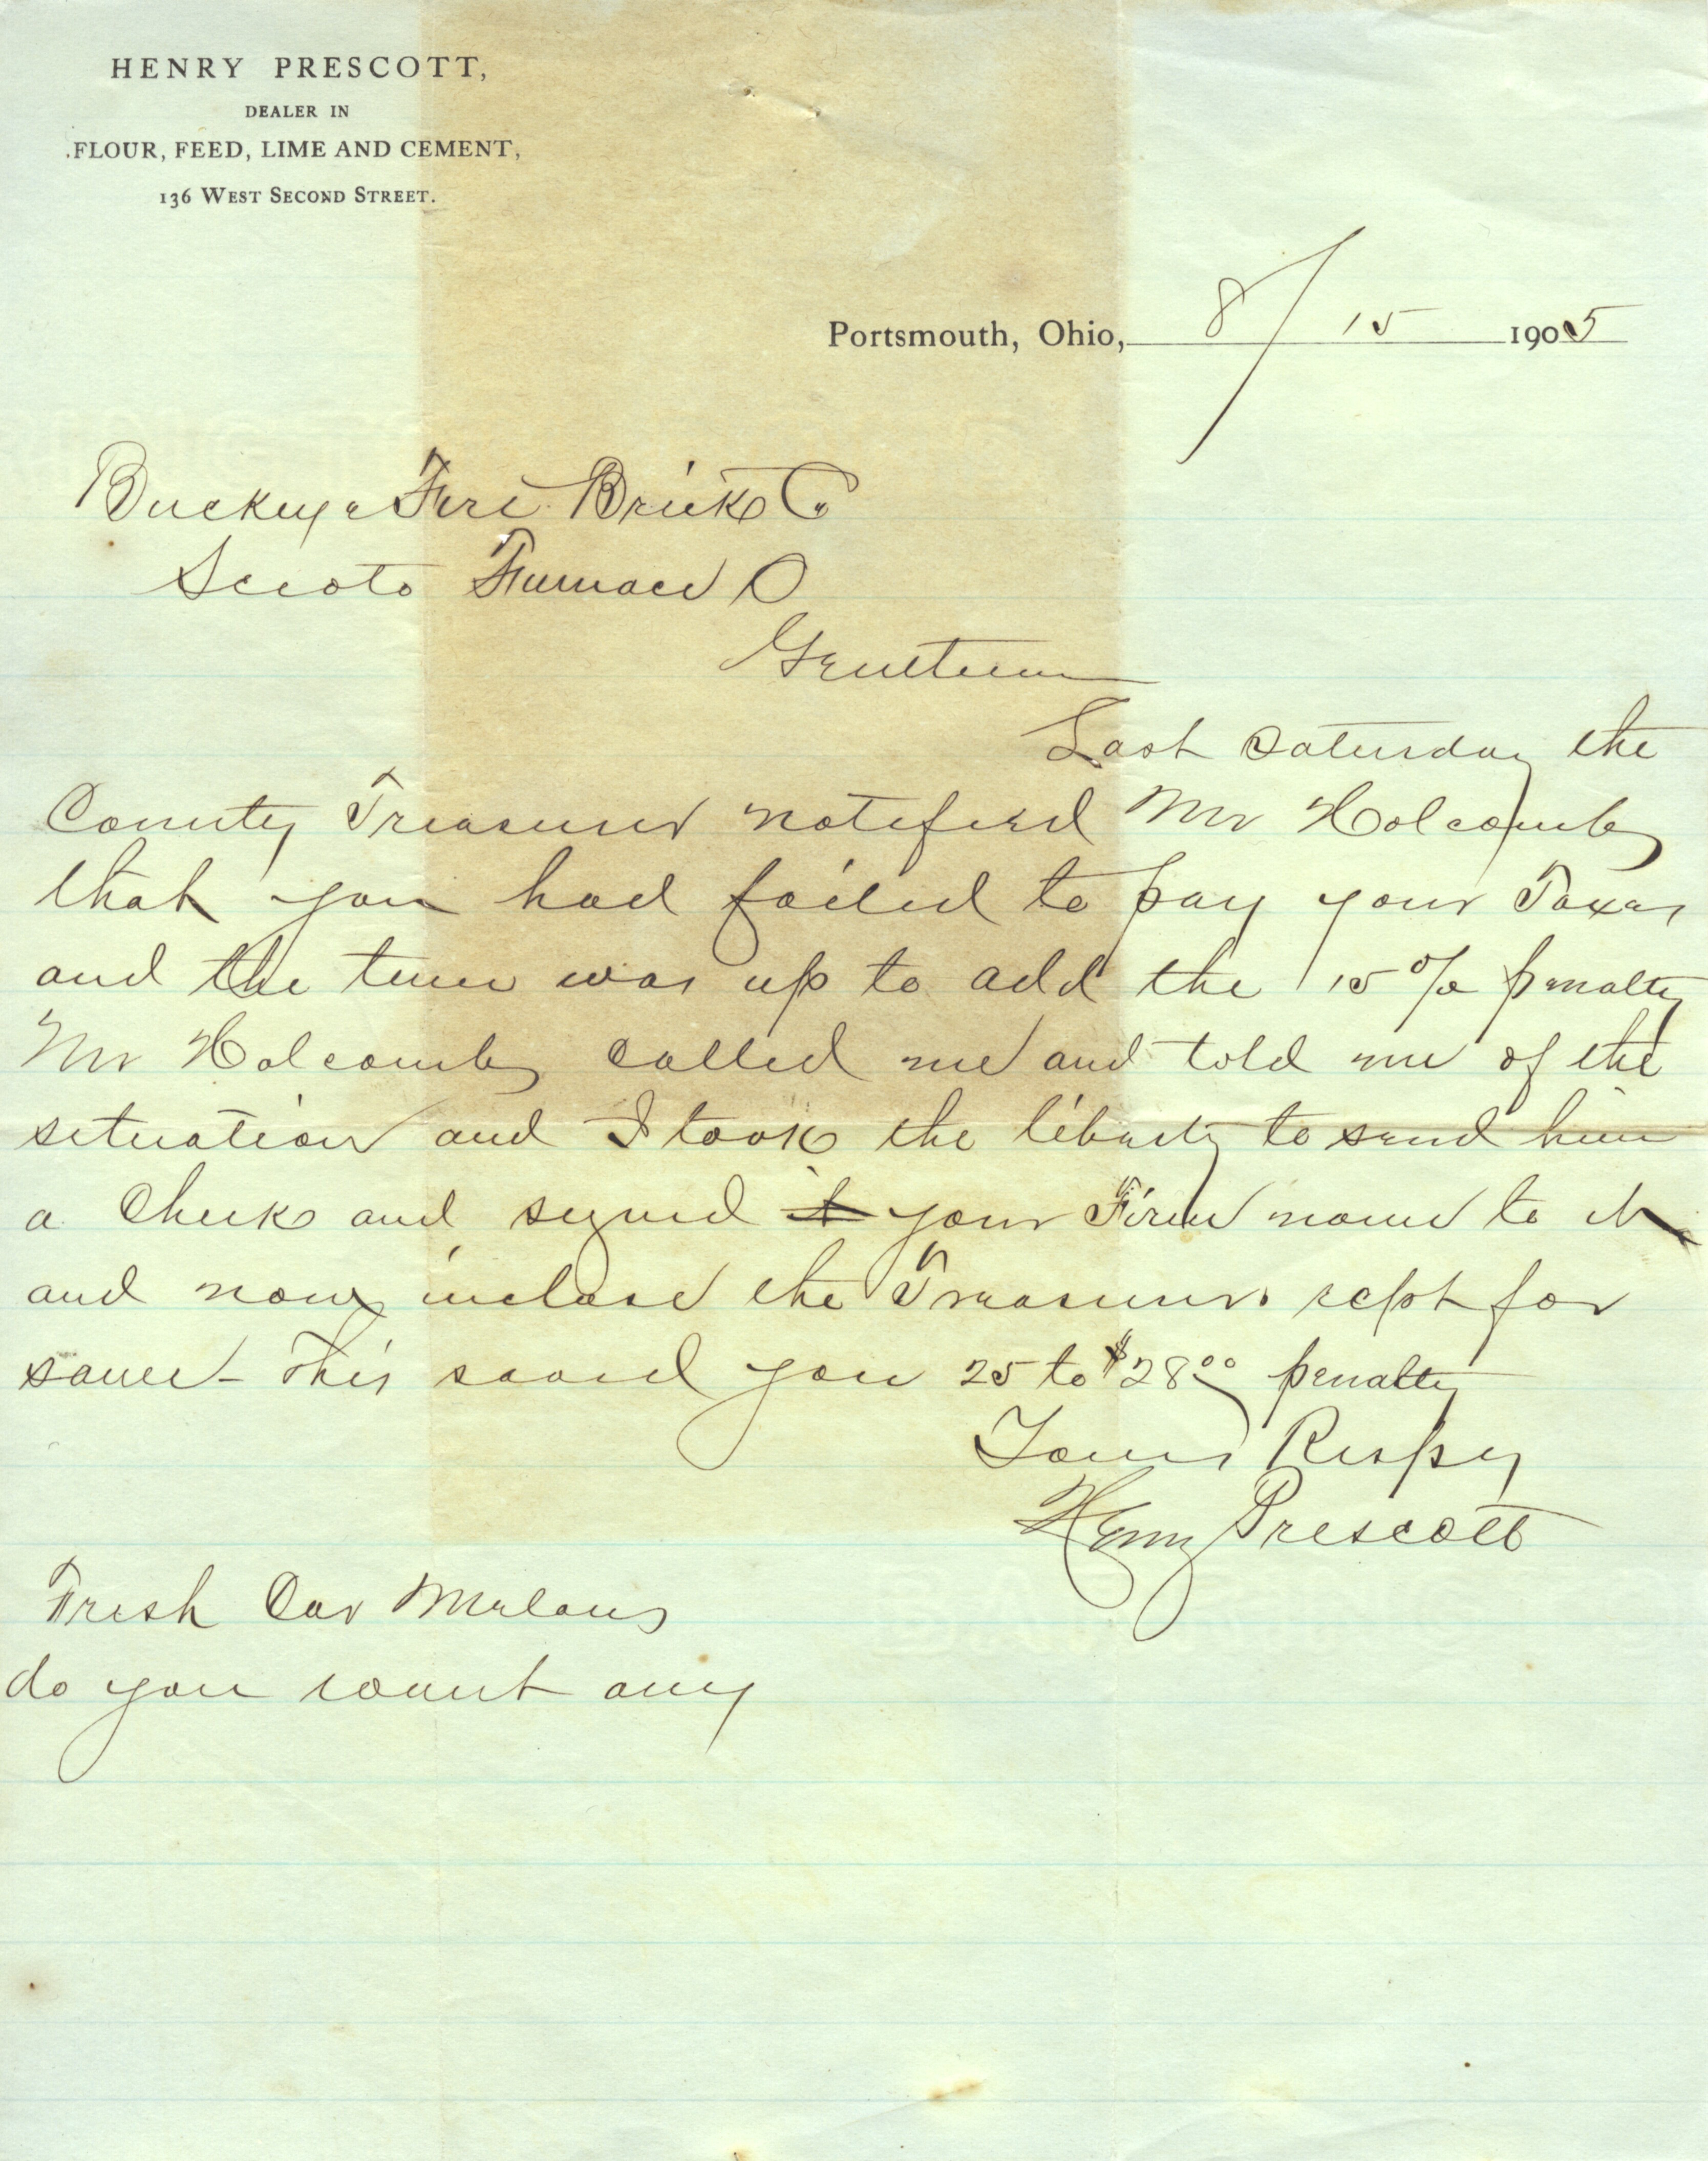 HENRY PRESCOTT,
DEALER IN
FLOUR, FEED, LIME AND CEMENT,
136 WEST SECOND STREET.
Portsmouth, Ohio, 8/15 1905
Buckeye Fire Brick Co
Scioto Furnace O
Gentlemen
Last Saturday the
County Treasurer notified Mr Holcomb
that you had failed to pay your Taxes
and the time was up to add the 15% penalty
Mr Holcomb called me and told me of the
situation and I took the liberty to send him
a Check and signed it your Firm name to it
and now inclose the Treasurers rcpt for
same - This saved you 25 to $28.00 penalty
Yours Respy
Henry Prescott
Fresh Car Melons
do you want any